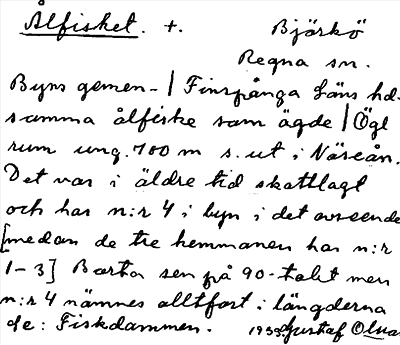 Ålfisket. +. Björkö
Regna sn.
Byns gemen- | Finspånga Läns hd.
samma ålfiske som ägde | Ögl
rum ung. 100 m s. ut i Näreån.
Det var i äldre tid skattlagt
och har n:r 4 i byn i det avseende
[medan de tre hemmanen har n:r
1-3] Borta sen på 90-talet men
n:r 4 nämnes alltfort i längderna
de: Fiskdammen. 1933. Gustaf